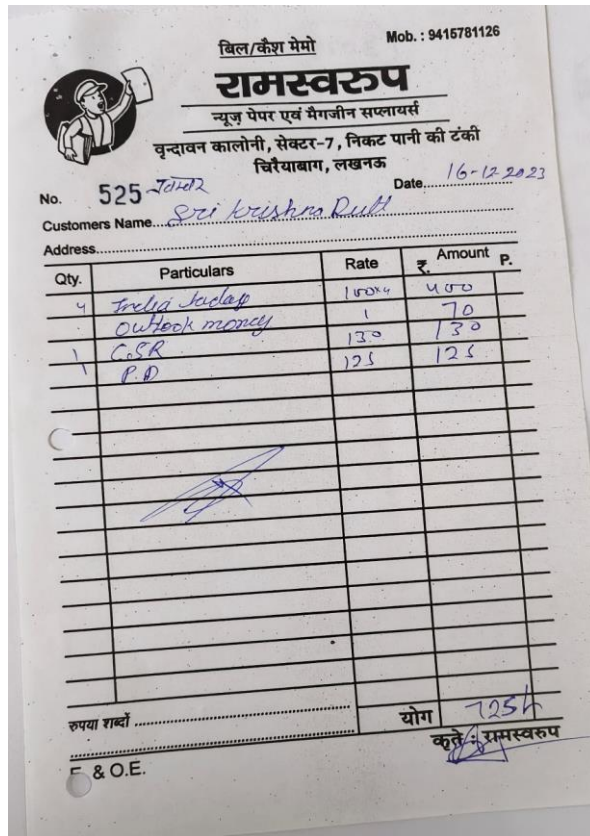 बिल/कैश मेमो Mob. : 9415781126
रामस्वरुप
न्यूज़ पेपर एवं मैगजीन सप्लायर्स
वृन्दावन कालोनी, सेक्टर-7, निकट पानी की टंकी
चिरैयाबाग, लखनऊ
No. 525 Date 16-12-2023
Customers Name Sri Krishna Dutt
Address
Qty. Particulars Rate ₹. Amount P.
4 India today 100x4 400
Outlook money 1 70
1 C.S.R 130 130
1 P.D 125 125
रुपया शब्दों योग 725/-
कृते : रामस्वरुप
E. & O.E.